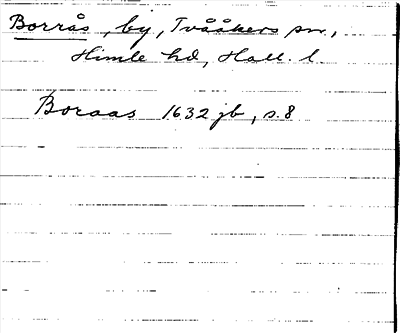 Borrås, by, Tvååkers sn,
Himle hd, Hall. l.
Boraas 1632 jb, s. 8